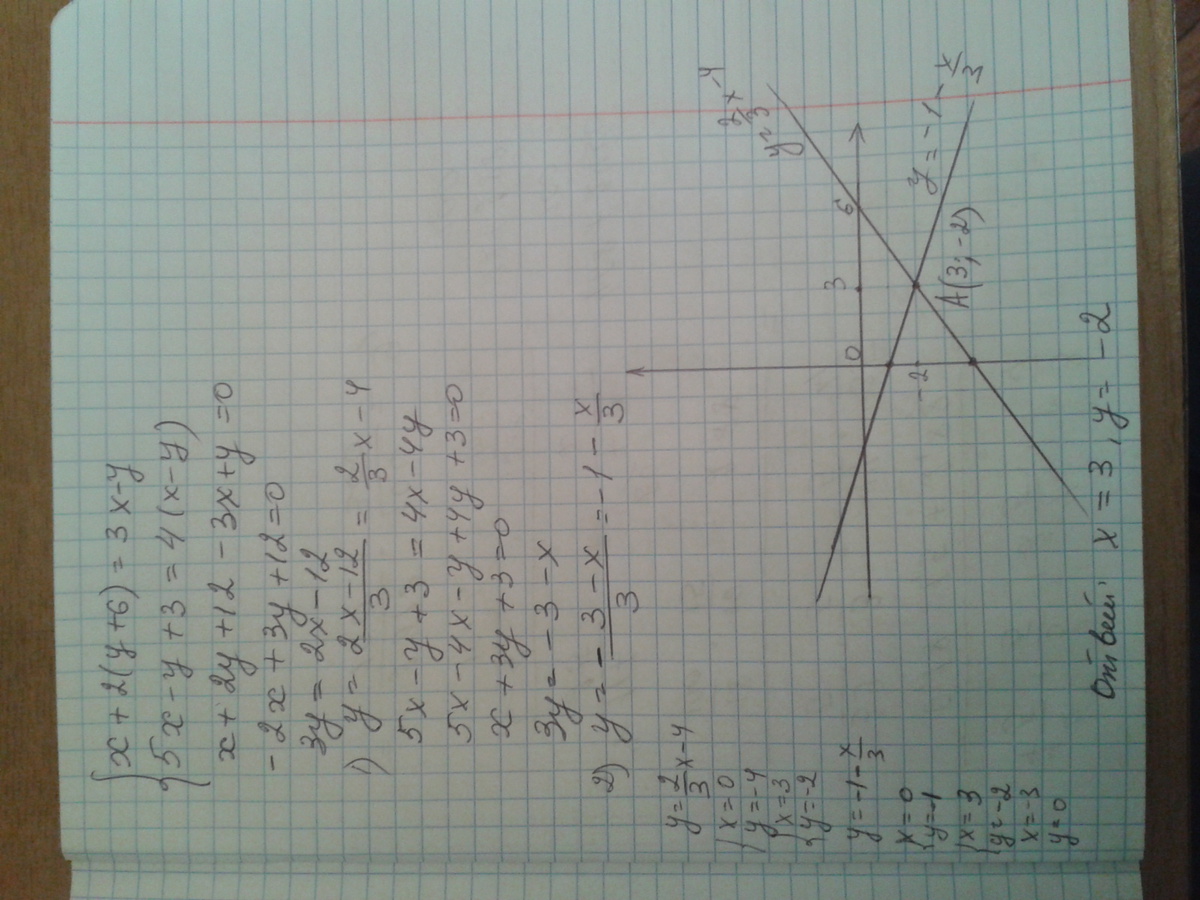 { x + 2(y+6) = 3x-y
{ 5x - y + 3 = 4(x-y)
x + 2y + 12 - 3x + y = 0
-2x + 3y + 12 = 0
3y = 2x - 12
1) y = (2x - 12)/3 = 2/3 x - 4
5x - y + 3 = 4x - 4y
5x - 4x - y + 4y + 3 = 0
x + 3y + 3 = 0
3y = -3 - x
2) y = (-3 - x)/3 = -1 - x/3
y = 2/3 x - 4
{ x = 0
{ y = -4
{ x = 3
{ y = -2
y = -1 - x/3
{ x = 0
{ y = -1
{ x = 3
{ y = -2
x = -3
y = 0
y = 2/3 x - 4
0
3
6
-2
y = -1 - x/3
A(3; -2)
Ответ: x = 3, y = -2